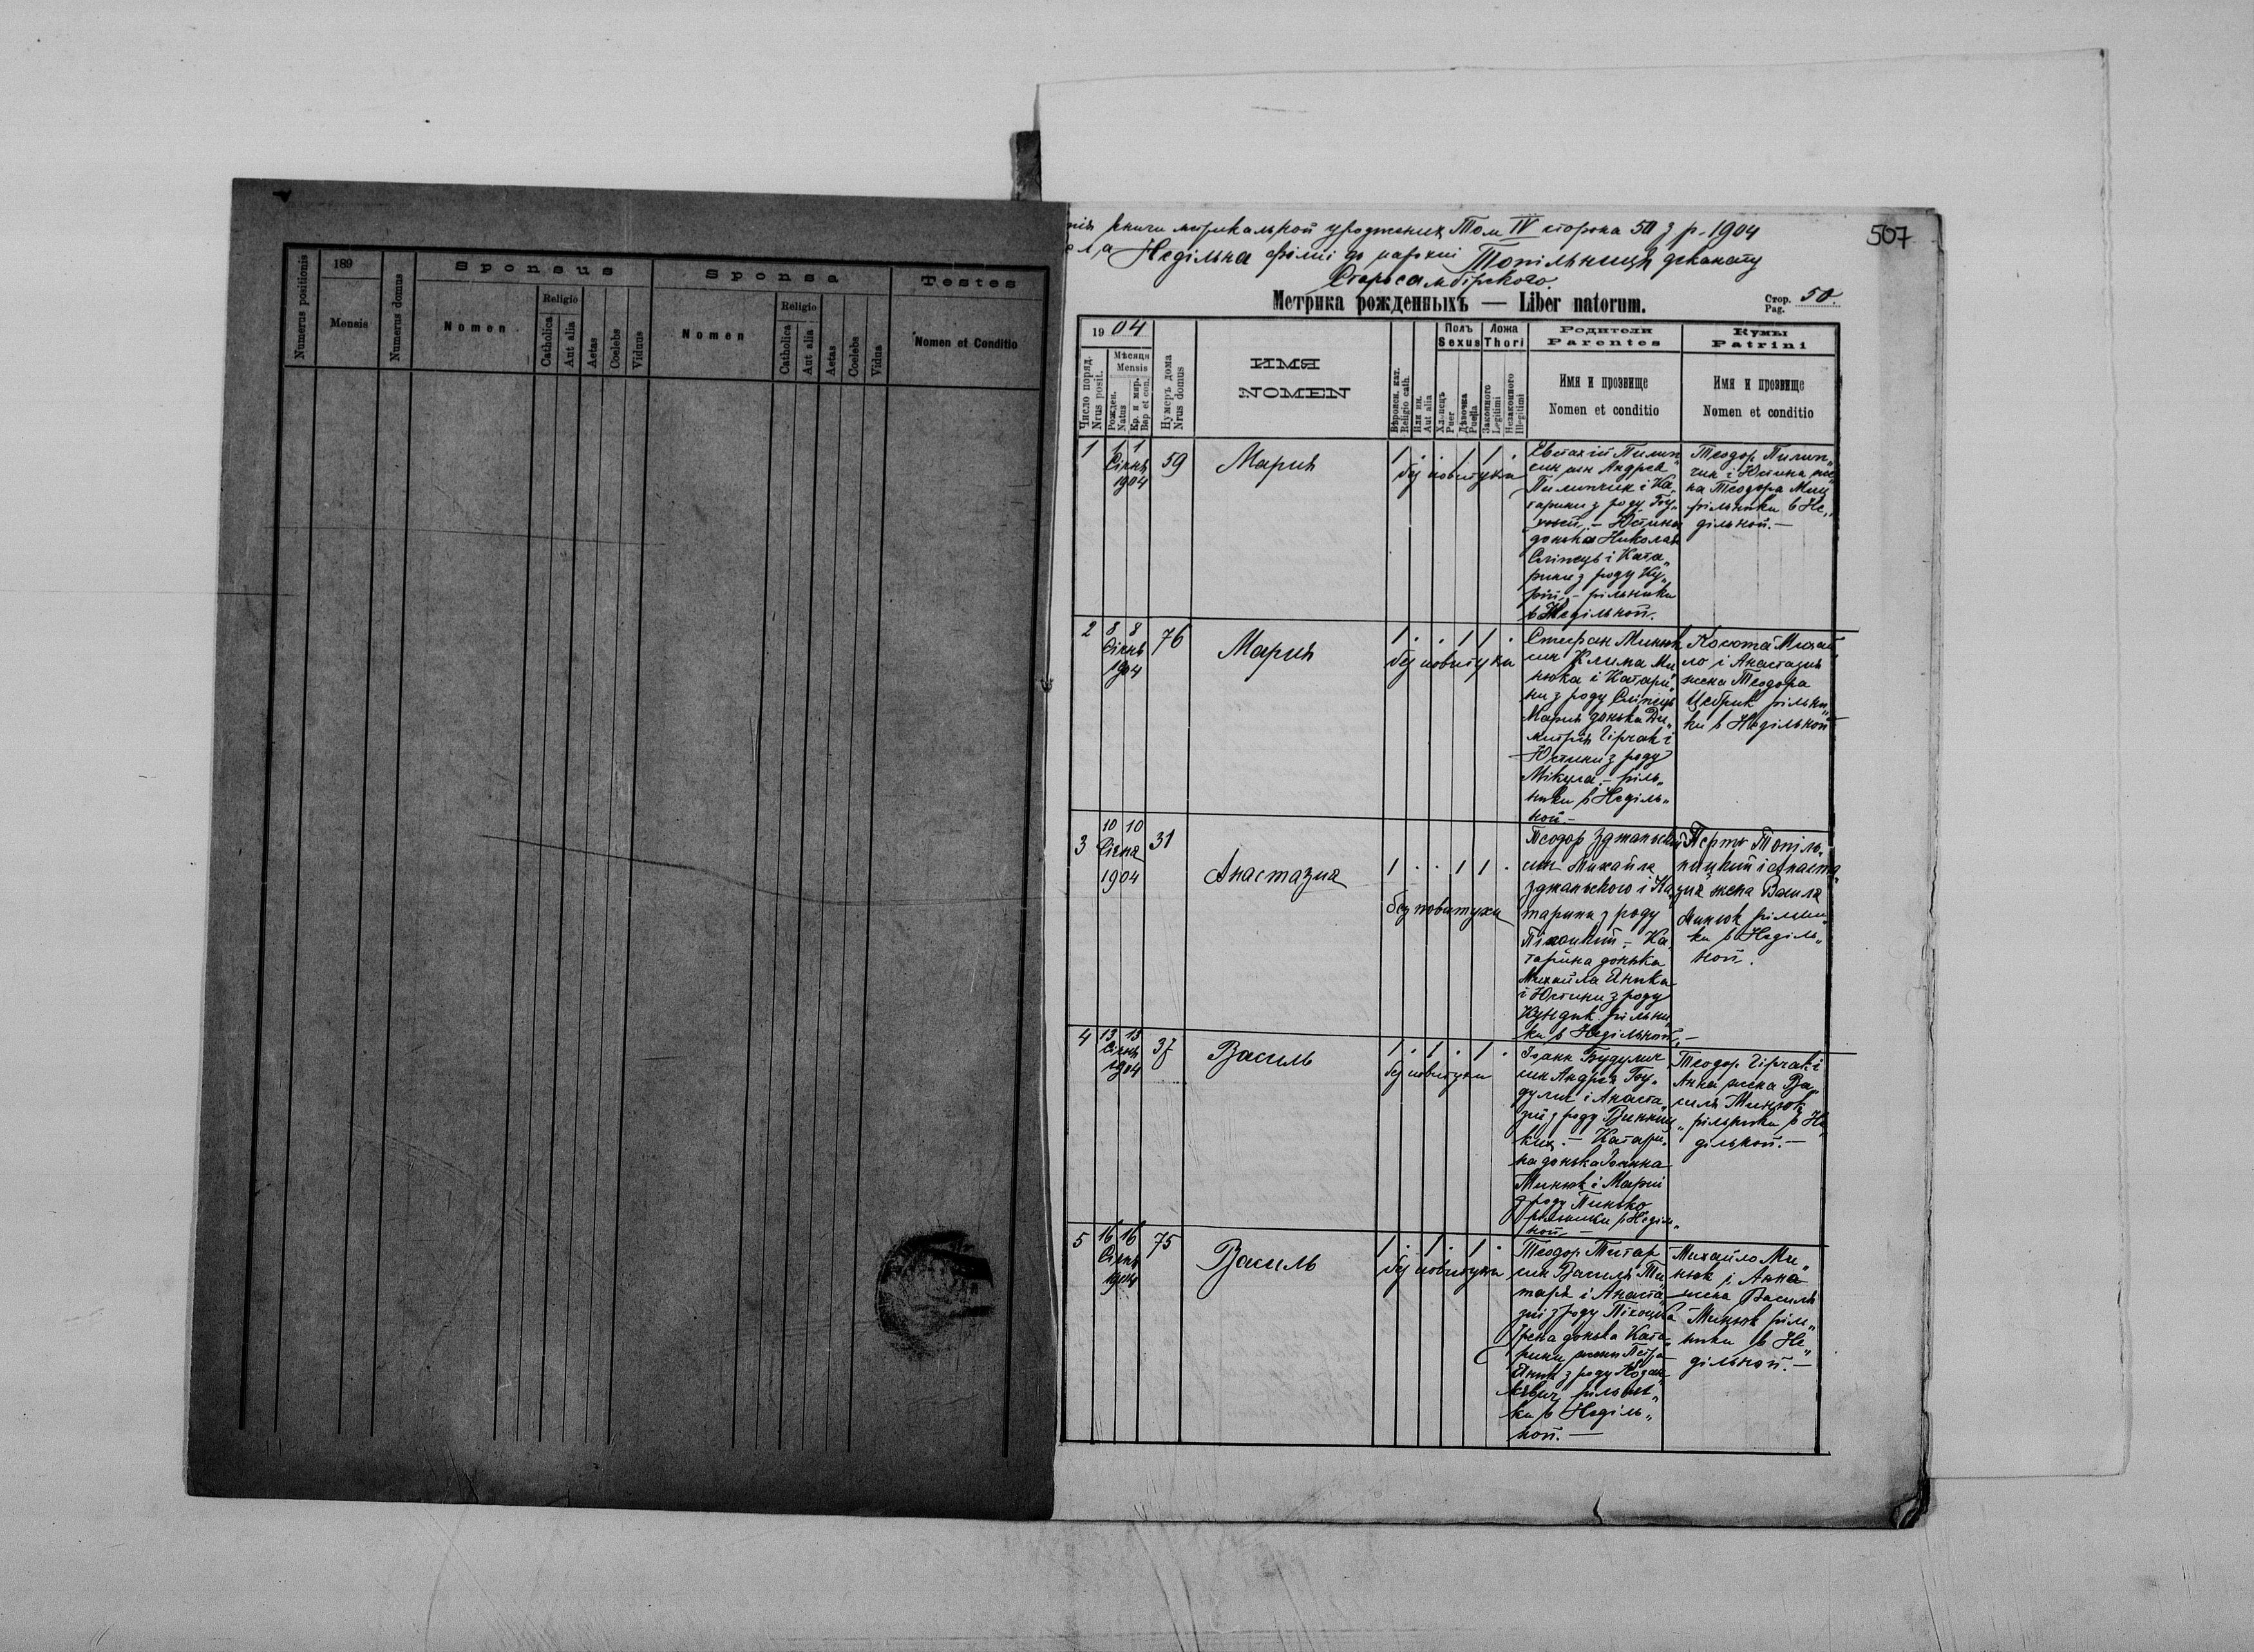 Numerus positionis
189
Mensis
Numerus domus
Sponsus
Nomen
Religio
Catholica
Aut alia
Aetas
Coelebs
Viduus
Sponsa
Nomen
Religio
Catholica
Aut alia
Aetas
Coelebs
Vidua
Testes
Nomen et Conditio
507
книги метрикальной урождених Том IV сторона 50 з р. 1904
Недільна філиі до парохиі Топільниця деканату
Старосамбірского.
Метрика рожденныхъ — Liber natorum.
Стор. Pag. 50.
1904
Число поряд. Nrus posit.
Мѣсяця Mensis
Рожден. Natus
Кр. и мир. Bap et con.
Нумеръ дома Nrus domus
ИМЯ
NOMEN
Вѣроисп. кат. Religio cath.
Или ин. Aut alia
Полъ Sexus
Хлопецъ Puer
Дѣвочка Puella
Ложа Thori
Законного Legitimi
Незаконного Illegitimi
Родители
Parentes
Имя и прозвище
Nomen et conditio
Кумы
Patrini
Имя и прозвище
Nomen et conditio
1
1 1
Січнѣ
1904
59
Мария
1 . . 1 1 .
без повитухи
Евстахій Пилип„
син Андрея
Пилипчик і Ка„
тарини з роду
Юстина
донька Николая
Сліпець і Ката„
рини з роду
рільники
в Недільной.
Теодор Пилип„
чик і Юстина же„
на Теодора
рільники в Не„
дільной. —
2
8 8
Січнѣ
1904
76
Мария
1 . . 1 1 .
без повитухи
Стефан Минюк
син Клима Ми„
нюка і Катари„
ни з роду Сліпець
Мария донька Ди„
митрія Гірчак і
Юстини з роду
Мікула. — ріль„
ники в Неділь„
ной. —
Михай„
ло і Анастазия
жена Теодора
Цебрик рільни„
ки в Недільной —
3
10 10
Січня
1904
31
Анастазия
1 . . 1 1 .
без повитухи
Теодор Зджаньский
син Михайла
Зджаньского і Ка„
тарини з роду
Ка„
тарина донька
Михайла Яника
і Юстини з роду
Кундик рільни„
ки в Недільной. —
Петро Топіль„
ницкий і Анаста„
зия жена Василя
рільни„
ки в Неділь„
ной.
4
13 13
Січнѣ
1904
37
Василь
1 . 1 . 1 .
без повитухи
Іоанн Будулич
син Андрія Бу„
дулич і Анаста„
зиї з роду Винниц„
ких. — Катари„
на донька Іоанна
Минюк і Марії
з роду Пинько
рільники в Неділь„
ной —
Теодор Гірчак і
Анна жена Ва„
силя Минюк
рільники в Не„
дільной. —
5
16 16
Січнѣ
1904
75
Василь
1 . 1 . 1 .
без повитухи
Теодор Титар
син Василя Ти„
таря і Анаста„
зиї з роду
донька Ката„
рини жени Петра
Яник з роду
рільни„
ки в Неділь„
ной. —
Михайло Ми„
нюк і Анна
жена Василя
Минюк ріль„
ники в Не„
дільной. —